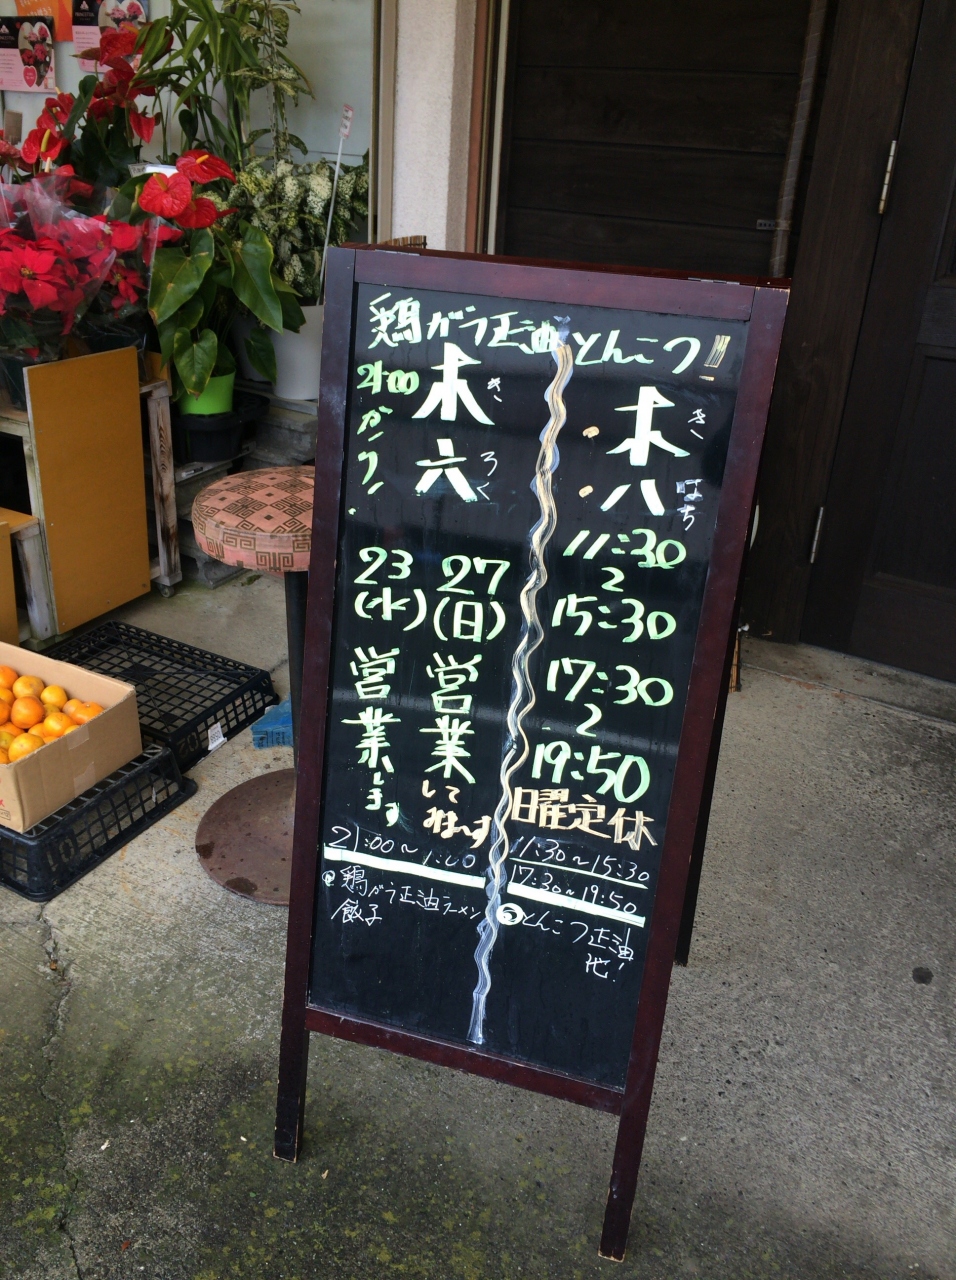 鶏ガラ正油 とんこつ!!
21:00
から
木六
きろく
23
(水)
営業します
27
(日)
営業してねーす
21:00〜1:00
鶏ガラ正油ラーメン
餃子
木八
きはち
11:30
〜
15:30
17:30
〜
19:50
日曜定休
11:30〜15:30
17:30〜19:50
とんこつ正油
他!